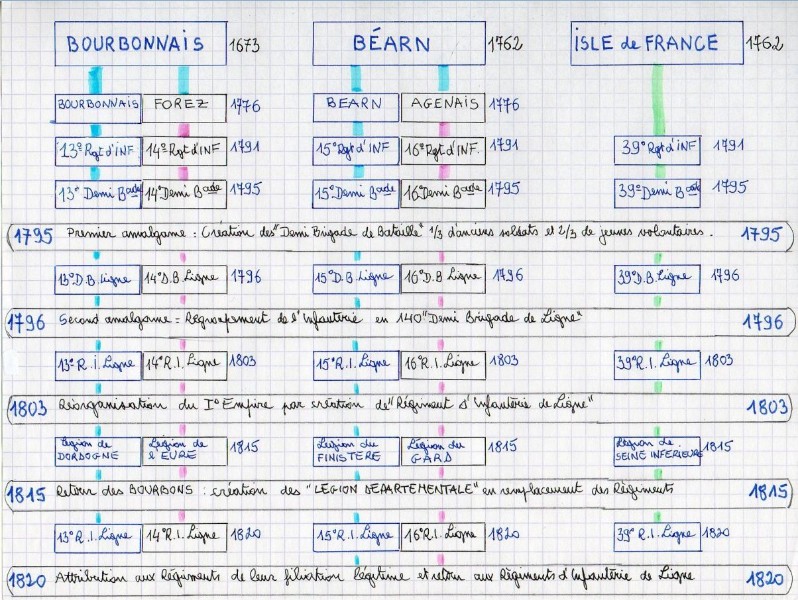 BOURBONNAIS 1673 BÉARN 1762 iSLE de FRANCE 1762
BOURBONNAIS FOREZ 1776 BEARN AGENAIS 1776
13° Rgt d'iNF 14° Rgt d'INF 1791 15° Rgt d'INF 16° Rgt d'INF. 1791 39° Rgt d'iNF 1791
13° Demi Bade 14° Demi Bade 1795 15° Demi Bade 16° Demi Bade 1795 39° Demi Bade 1795
1795 Premier amalgame : Création des "Demi Brigade de Bataille" 1/3 d'anciens soldats et 2/3 de jeunes volontaires. 1795
13° D.B. Ligne 14° D.B Ligne 1796 15° D.B Ligne 16° D.B Ligne 1796 39° D.B. Ligne 1796
1796 Second amalgame = Regroupement de l'Infanterie en 140 "Demi Brigade de Ligne" 1796
13° R.I. Ligne 14° R.I. Ligne 1803 15° R.I. Ligne 16° R.I. Ligne 1803 39° R.I. Ligne 1803
1803 Réorganisation du I° Empire par création de "Régiment d'Infanterie de Ligne" 1803
Légion de DORDOGNE Légion de l'EURE 1815 Légion du FINISTERE Légion du GARD 1815 Légion de SEINE INFERIEURE 1815
1815 Retour des BOURBONS : création des "LEGION DEPARTEMENTALE" en remplacement des Régiments 1815
13° R.I. Ligne 14° R.I. Ligne 1820 15° R.I. Ligne 16° R.I. Ligne 1820 39° R.I. Ligne 1820
1820 Attribution aux Régiments de leur filiation légitime et retour aux Régiments d'Infanterie de Ligne 1820